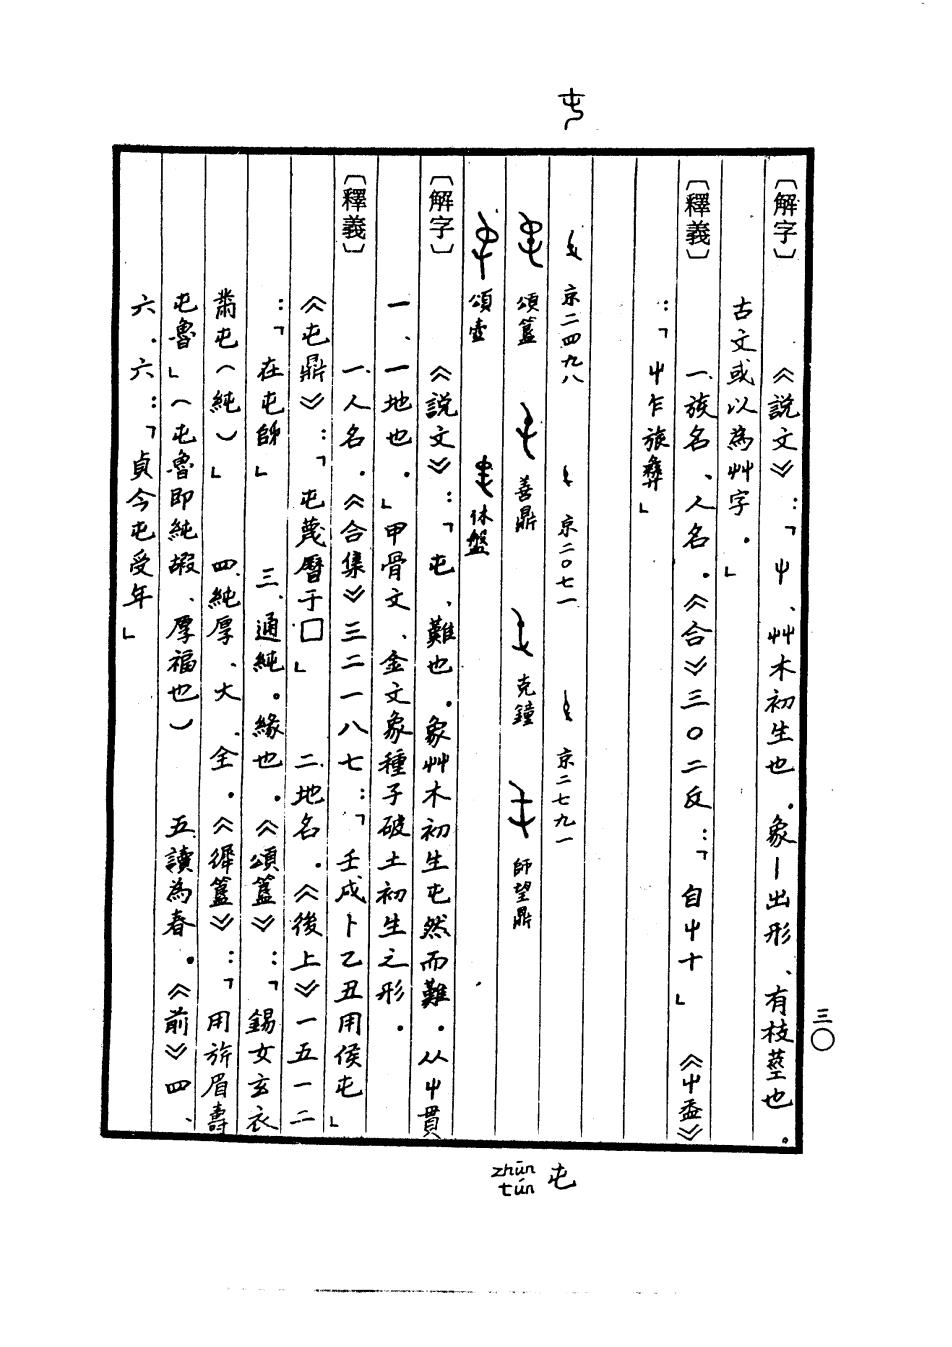 屯
〔解字〕　《說文》：「屮、艸木初生也．象丨出形、有枝莖也．
古文或以為艸字．」
〔釋義〕　一、族名、人名．《合》三〇二反：「自屮十」　《屮盉》
：「屮乍旅彝」
京二四九八　京二〇七一　京二七九一
頌簋　善鼎　克鐘　師望鼎
頌壺　休盤
〔解字〕　《說文》：「屯、難也．象艸木初生屯然而難．从屮貫
一、一地也．」甲骨文、金文象種子破土初生之形．
〔釋義〕　一、人名．《合集》三二一八七：「壬戌卜乙丑用侯屯」
《屯鼎》：「屯蔑曆于□」　二、地名．《後上》一五一二
：「在屯𠂤」　三、通純。緣也．《頌簋》：「錫女玄衣
黹屯（純）」　四、純厚、大、全．《㣇簋》：「用旂眉壽
屯魯」（屯魯即純嘏、厚福也）　五、讀為春．《前》四、
六．六：「貞今屯受年」
三〇
zhūn
tún
屯